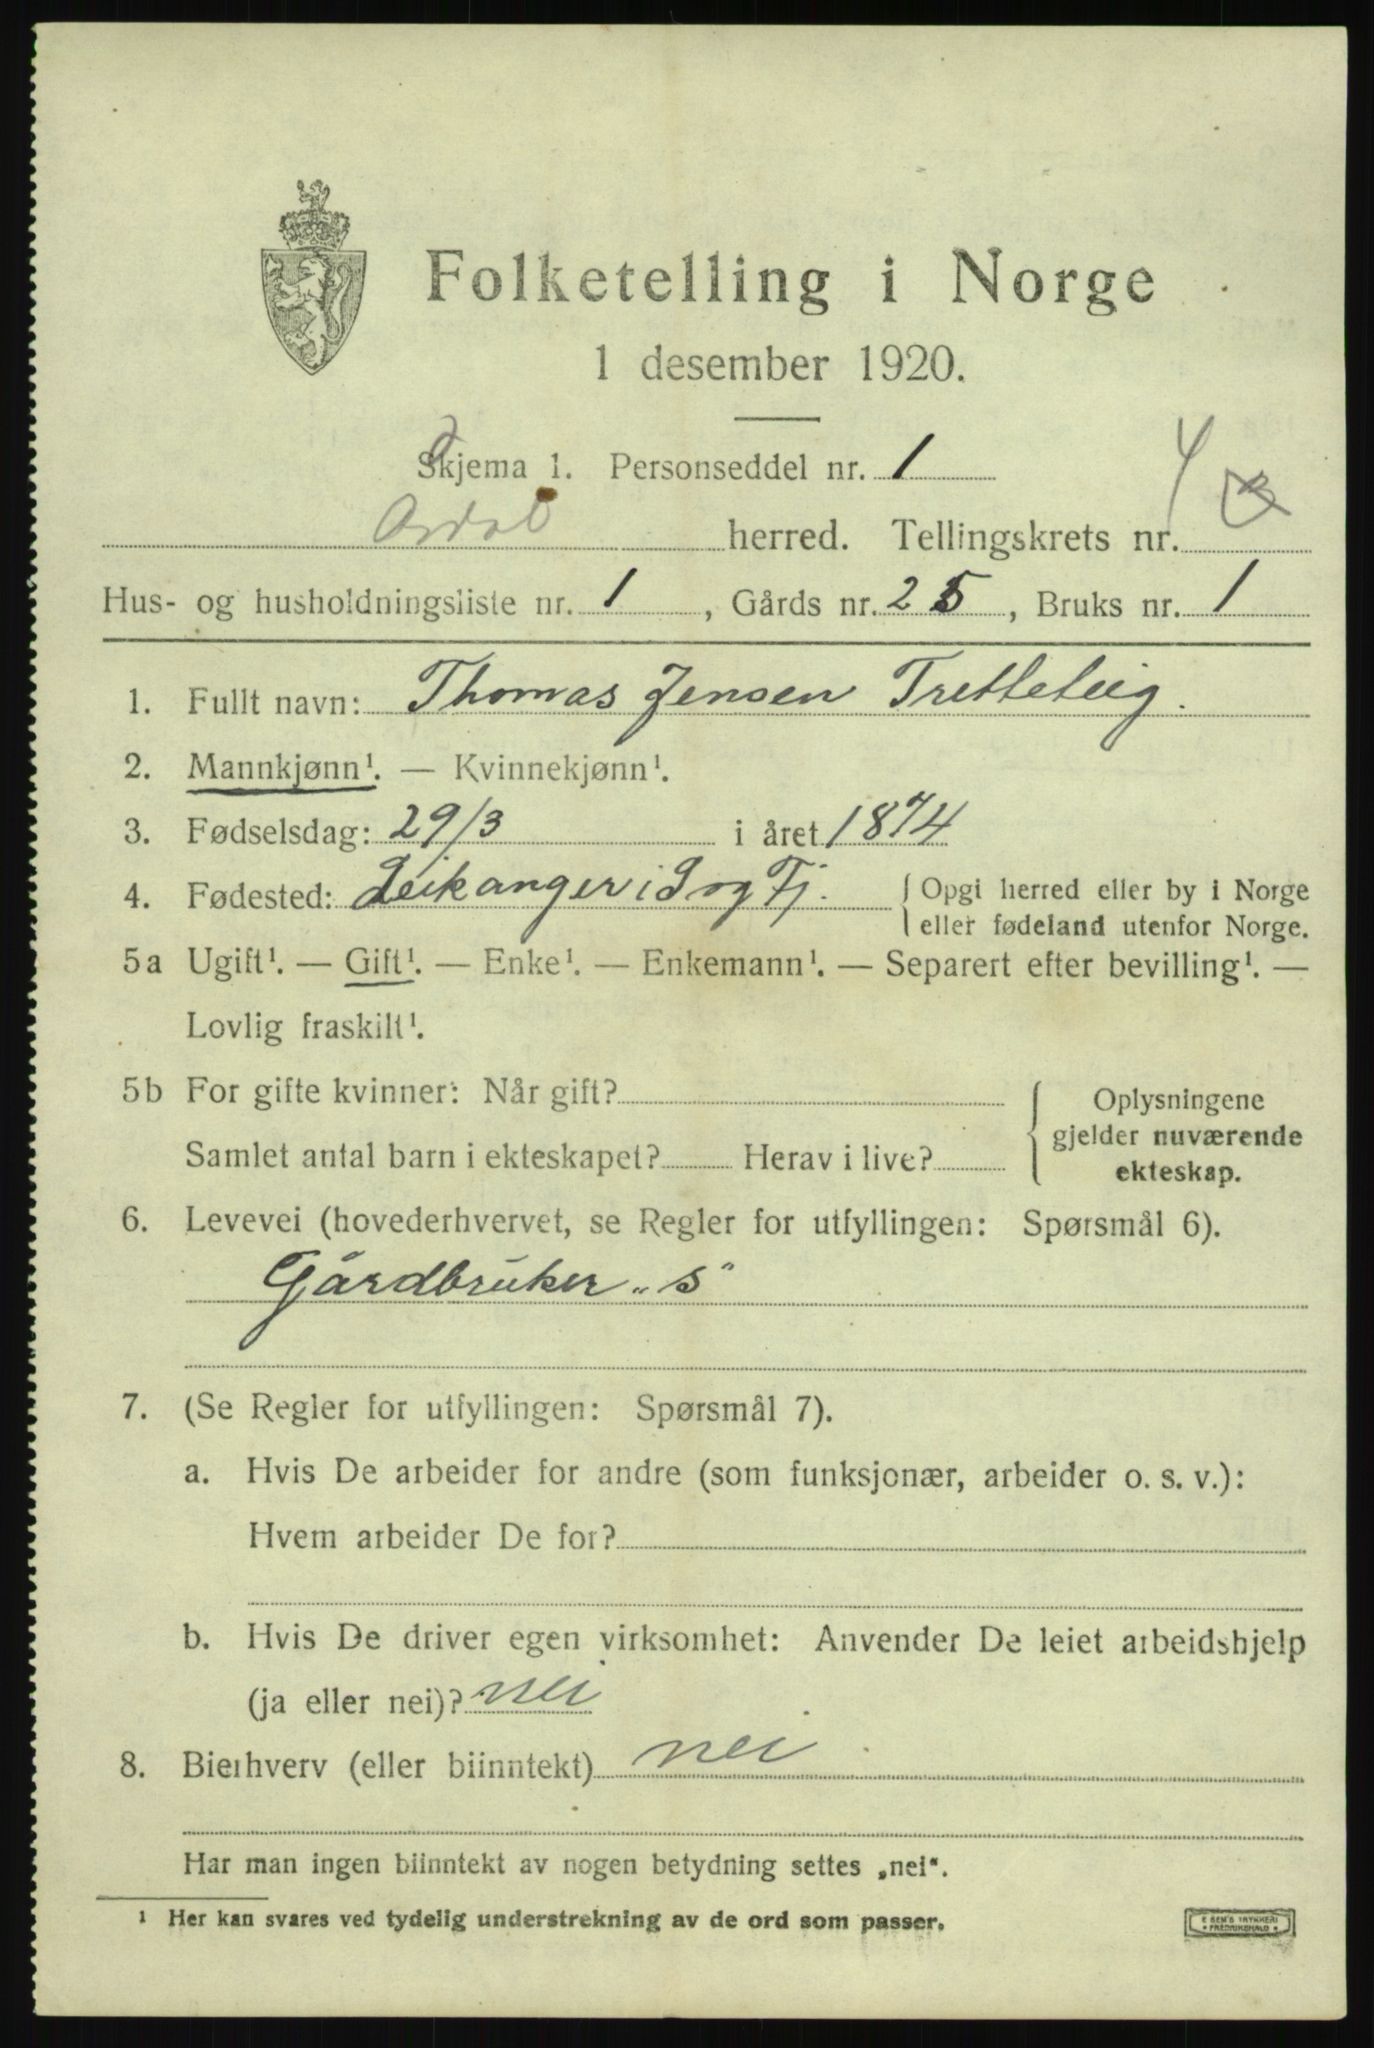 Folketelling i Norge
1 desember 1920.
Skjema 1. Personseddel nr. 1
Årdal herred. Tellingskrets nr. 4
Hus- og husholdningsliste nr. 1, Gårds nr. 25, Bruks nr. 1
1. Fullt navn: Thomas Jensen Tretteteig.
2. Mannkjønn¹. — Kvinnekjønn¹.
3. Fødselsdag: 29/3 i året 1874
4. Fødested: Leikanger i S og Fj. { Opgi herred eller by i Norge
eller fødeland utenfor Norge.
5a Ugift¹. — Gift¹. — Enke¹. — Enkemann¹. — Separert efter bevilling¹. —
Lovlig fraskilt¹.
5b For gifte kvinner: Når gift?
Samlet antal barn i ekteskapet? Herav i live?
{ Oplysningene
gjelder nuværende
ekteskap.
6. Levevei (hovederhvervet, se Regler for utfyllingen: Spørsmål 6).
Gårdbruker „s"
7. (Se Regler for utfyllingen: Spørsmål 7).
a. Hvis De arbeider for andre (som funksjonær, arbeider o. s. v.):
Hvem arbeider De for?
b. Hvis De driver egen virksomhet: Anvender De leiet arbeidshjelp
(ja eller nei)? nei
8. Bierhverv (eller biinntekt) nei
Har man ingen biinntekt av nogen betydning settes „nei".
¹ Her kan svares ved tydelig understrekning av de ord som passer.